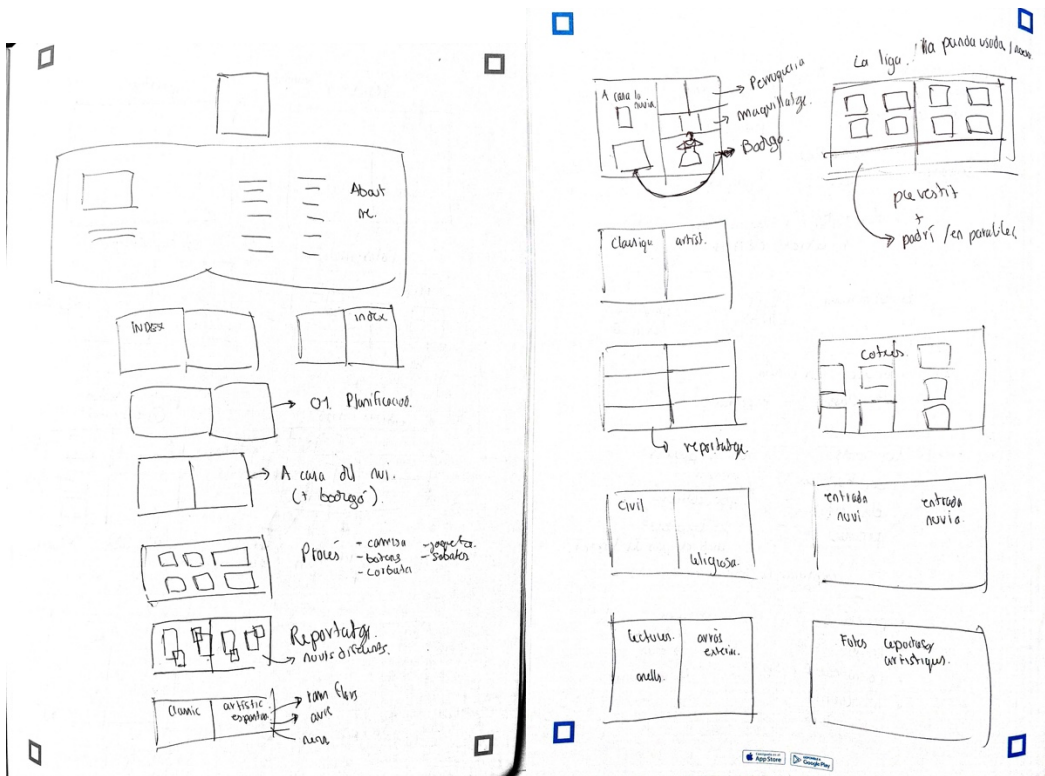 About
me.
INDEX
index
01 Planificació.
A casa del nuvi.
(+ bodegó).
Procés
- camisa
- botons
- corbata
- jaqueta.
- sabates
Reportatge.
nous dissenys.
Clàssic
artístic
espontani
ram flors
avis
nens
A casa la
núvia
Perruqueria
maquillatge.
Bodegó.
La lliga.
usada /
pre vestit
+
padrí / en paral·lel
artíst.
reportatge.
cotxes
civil
religiosa.
entrada
nuvi
entrada
nuvia.
lectures.
anells.
arròs
exterior.
Fotos reportatge
artístiques.
Download on the
App Store
Google Play